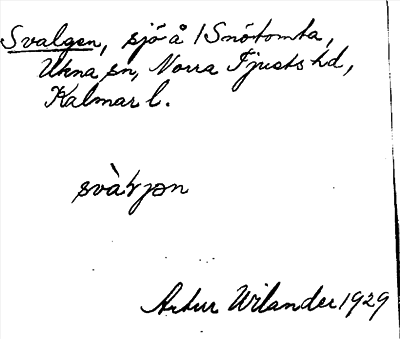 Svalgen, sjö å /Snötomta,
Ukna sn, Norra Tjusts hd,
Kalmar l.
Artur Wilander 1929